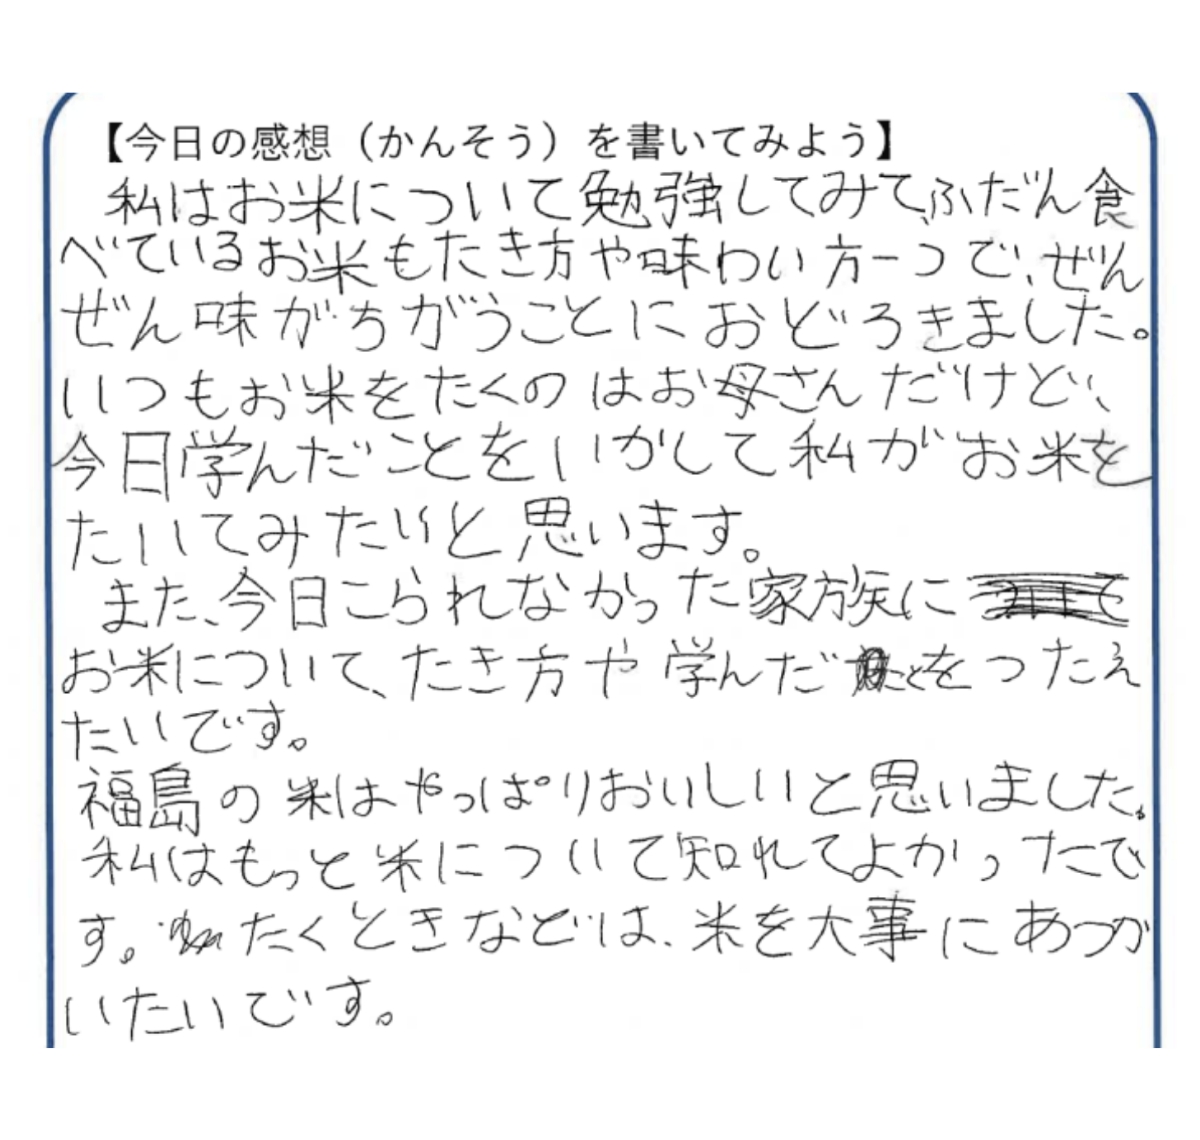 【今日の感想（かんそう）を書いてみよう】
私はお米について勉強してみて、ふだん食
べているお米もたき方や味わい方一つで、ぜん
ぜん味がちがうことにおどろきました。
いつもお米をたくのはお母さんだけど、
今日学んだことをいかして私がお米を
たいてみたいと思います。
また、今日こられなかった家族に
お米について、たき方や学んだことをつたえ
たいです。
福島の米はやっぱりおいしいと思いました。
私はもっと米について知れてよかったで
す。たくときなどは、米を大事にあつか
いたいです。